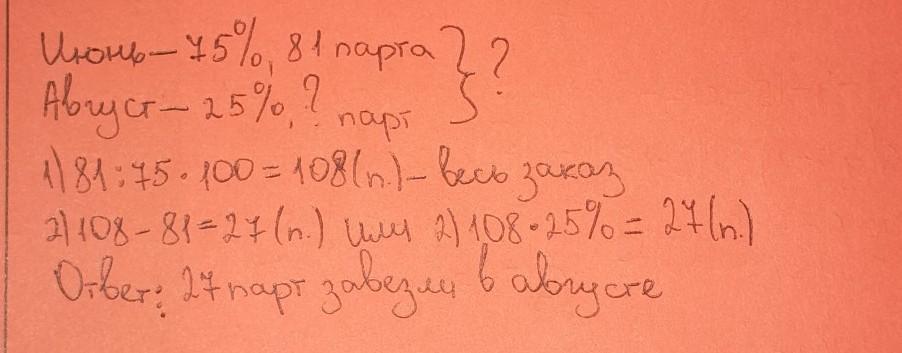 Июнь – 75%, 81 парта } ?
Август – 25%, ? парт
1) 81:75·100=108(п.) – весь заказ
2) 108–81=27(п.) или 2) 108·25%=27(п.)
Ответ: 27 парт завезли в августе